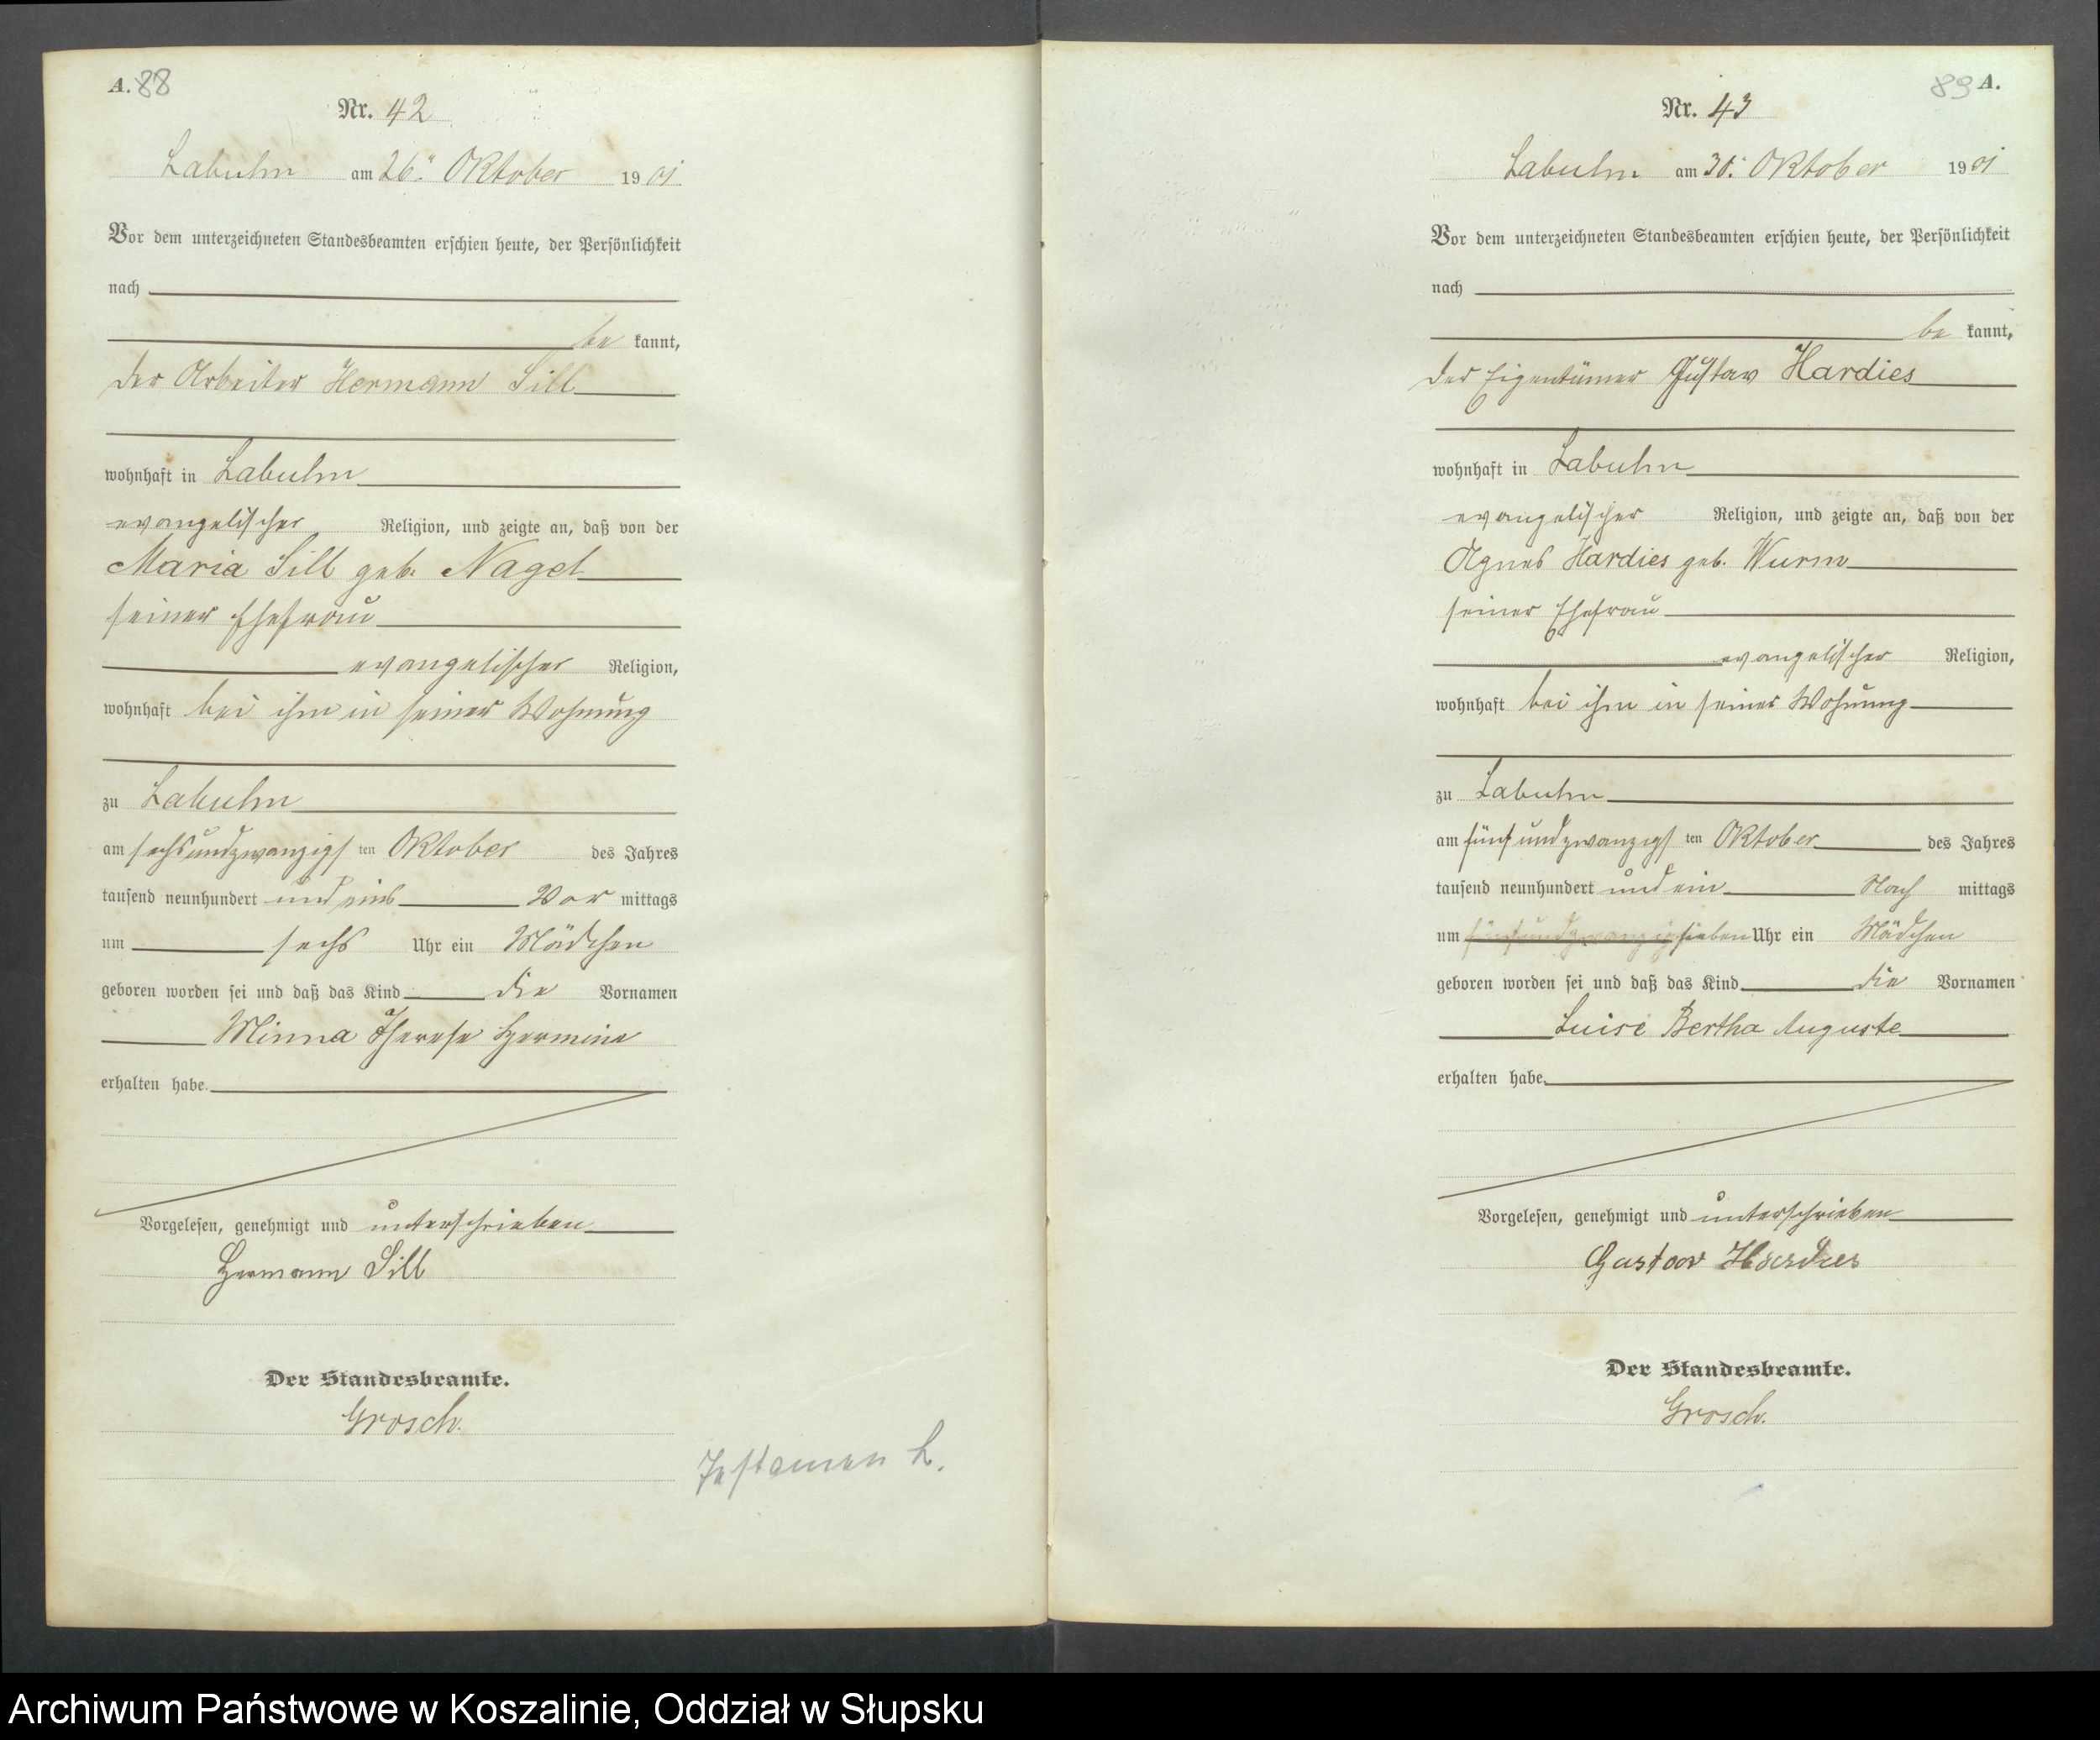 A. 88
Nr. 42
Labuhn am 26. Oktober 1901
Vor dem unterzeichneten Standesbeamten erschien heute, der Persönlichkeit
nach
be kannt,
der Arbeiter Hermann Sill
wohnhaft in Labuhn
evangelischer Religion, und zeigte an, daß von der
Maria Sill geb. Nagel
seiner Ehefrau
evangelischer Religion,
wohnhaft bei ihm in seiner Wohnung
zu Labuhn
am sechsundzwanzigsten Oktober des Jahres
tausend neunhundert und eins Vor mittags
um sechs Uhr ein Mädchen
geboren worden sei und daß das Kind die Vornamen
Minna Therese Hermine
erhalten habe.
Vorgelesen, genehmigt und unterschrieben
Hermann Sill
Der Standesbeamte.
Grosch.
89 A.
Nr. 43
Labuhn am 30. Oktober 1901
Vor dem unterzeichneten Standesbeamten erschien heute, der Persönlichkeit
nach
be kannt,
der Eigentümer Gustav Hardies
wohnhaft in Labuhn
evangelischer Religion, und zeigte an, daß von der
Agnes Hardies geb. Wurm
seiner Ehefrau
evangelischer Religion,
wohnhaft bei ihm in seiner Wohnung
zu Labuhn
am fünfundzwanzigsten Oktober des Jahres
tausend neunhundert und ein Nach mittags
um fünfundzwanzig sieben Uhr ein Mädchen
geboren worden sei und daß das Kind die Vornamen
Luise Bertha Auguste
erhalten habe.
Vorgelesen, genehmigt und unterschrieben
Gustav Hardies
Der Standesbeamte.
Grosch.
Archiwum Państwowe w Koszalinie, Oddział w Słupsku